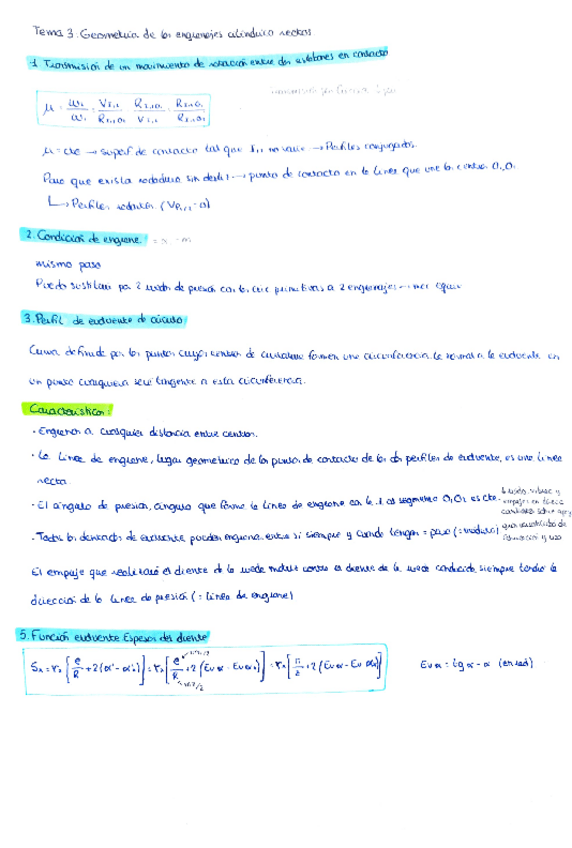 Tema 3. Geometría de los engranajes cilíndrico rectos
1. Transmisión de un movimiento de rotación entre dos eslabones en contacto
μ = ω₂/ω₁ =
μ = cte → superf de contacto tal que I₁₂ no varíe → Perfiles conjugados.
Para que exista rodadura sin desliz → punto de contacto en la línea que une los centros O₁O₂
↳ Perfiles
2. Condición de engrane.
mismo paso
Puedo sustituir por 2 de fricción con las primitivas a 2 engranajes →
3. Perfil de evolvente de círculo
Curva definida por los puntos cuyos centros de curvatura forman una circunferencia. La normal a la evolvente en
un punto cualquiera será tangente a esta circunferencia.
Características:
· Engranan a cualquier distancia entre centros.
· La línea de engrane, lugar geométrico de los puntos de contacto de los dos perfiles de evolvente, es una línea
recta.
· El ángulo de presión, ángulo que forma la línea de engrane con la ⊥ al segmento O₁O₂ es cte.
· Todos los dentados de evolvente pueden engranar entre sí siempre y cuando tengan = paso (= módulo)
El empuje que realizará el diente de la rueda motriz contra el diente de la rueda conducida, siempre tendrá la
dirección de la línea de presión (= línea de engrane)
5. Función evolvente Espesor del diente
Sₓ = rₓ [e/R + 2(α' - α'ₓ)] = rₓ [e/R + 2(Ev α - Ev αₓ)] = rₓ [π/z + 2(Ev α - Ev αₓ)]
Ev α = tg α - α (en rad)